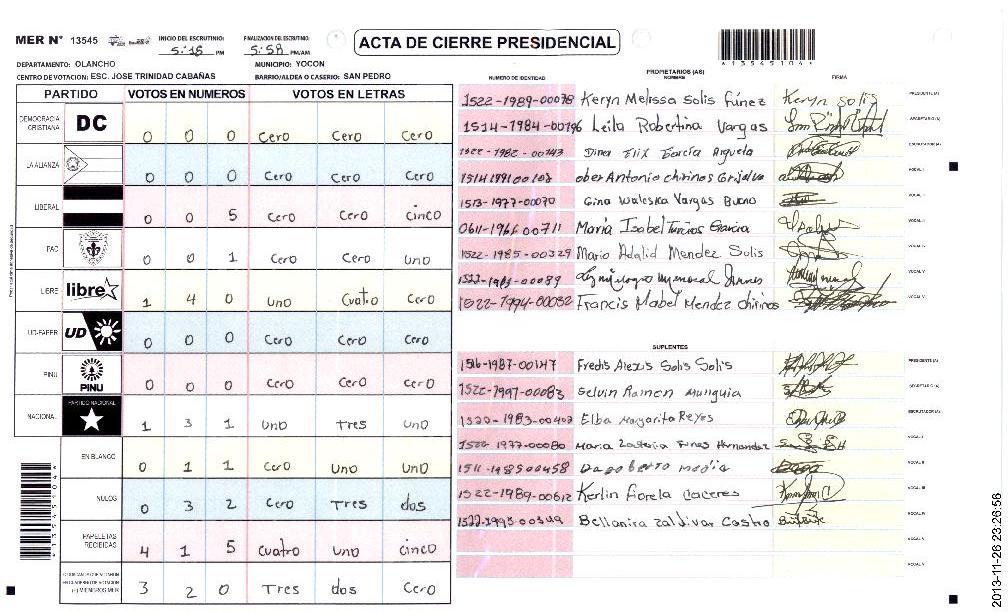 MER N° 13545 INICIO DEL ESCRUTINIO: 5:18 PM FINALIZACION DEL ESCRUTINIO: 5:58 PM/AM
ACTA DE CIERRE PRESIDENCIAL
*13545104*
DEPARTAMENTO: OLANCHO MUNICIPIO: YOCON
CENTRO DE VOTACION: ESC. JOSE TRINIDAD CABAÑAS BARRIO/ALDEA O CASERIO: SAN PEDRO
PARTIDO VOTOS EN NUMEROS VOTOS EN LETRAS
DEMOCRACIA CRISTIANA DC 0 0 0 Cero Cero Cero
LA ALIANZA 0 0 0 Cero Cero Cero
LIBERAL 0 0 5 Cero Cero cinco
PAC 0 0 1 Cero Cero uno
LIBRE libre 1 4 0 uno Cuatro Cero
UD-FAPER UD 0 0 0 Cero Cero Cero
PINU PINU 0 0 0 Cero Cero Cero
NACIONAL PARTIDO NACIONAL 1 3 1 Uno Tres uno
EN BLANCO 0 1 1 Cero Uno Uno
NULOS 0 3 2 Cero Tres dos
PAPELETAS RECIBIDAS 4 1 5 Cuatro uno cinco
CIUDADANOS QUE VOTARON EN CUADERNO DE VOTACION (+) MIEMBROS MER 3 2 0 Tres dos Cero
PROPIETARIOS (AS)
NUMERO DE IDENTIDAD NOMBRE FIRMA
1522-1989-00078 Keryn Melissa Solis Fúnez Keryn Solis PRESIDENTE (A)
1514-1984-00196 Leila Robertina Vargas SECRETARIO (A)
1522-1982-00143 Dina Elix Garcia Argueta ESCRUTADOR (A)
1514 1991 00102 ober Antonio chirinos Grijalva VOCAL I
1513-1977-00070 Gina Waleska Vargas Bueso VOCAL II
0611-1966 00711 Maria Isabel Turcios Garcia VOCAL III
1522-1985-00329 Mario Adalid Mendez Solis VOCAL IV
VOCAL V
1522-1994-00032 Francis Mabel Mendez chirinos VOCAL VI
SUPLENTES
1516-1987-00147 Fredis Alexis Solis Solis PRESIDENTE (A)
1522-1997-00083 Selvin Ramon Munguia SECRETARIO (A)
1520-1983-00402 Elba Margarita Reyes ESCRUTADOR (A)
1522 1977-00080 Maria Funes Hernandez VOCAL I
1511-1985 00458 Dagoberto mejia VOCAL II
1522-1989-00612 Kerlin fiorela Caceres VOCAL III
1522-1993-00349 Bellanira Zaldivar Castro VOCAL IV
VOCAL V
VOCAL VI
*13545104*
2013-11-26 23:26:56